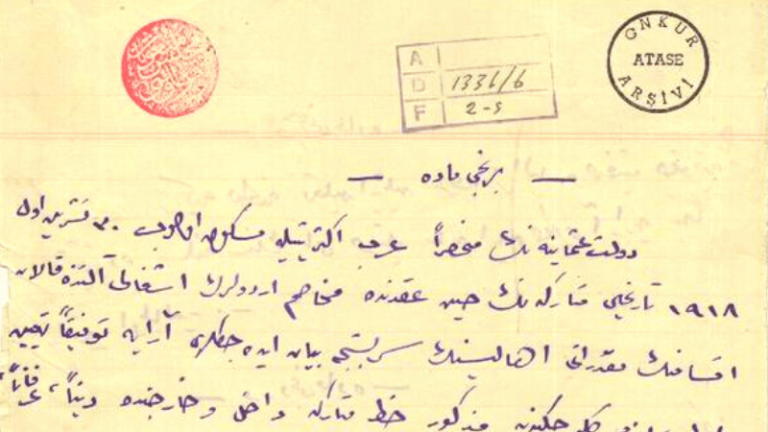 GNKUR
ATASE
ARŞİVİ
A
D 1336/6
F 2-5
— برنجی ماده —
دولت عثمانیه نك منحصراً عرب اكثریتیله مسكون اولوب ٣٠ تشرین اول
١٩١٨ تاریخلی متاركه نك حین عقدنده مخاصم اردولرك اشغالی آلتنده قالان
اقسامنك مقدراتی اهالیسنك سربستجه بیان ایده جكلری آرایه توفیقاً تعیین
كله جكندن مذكور خط متاركه داخل و خارجنده دیناً، عرفاناً،